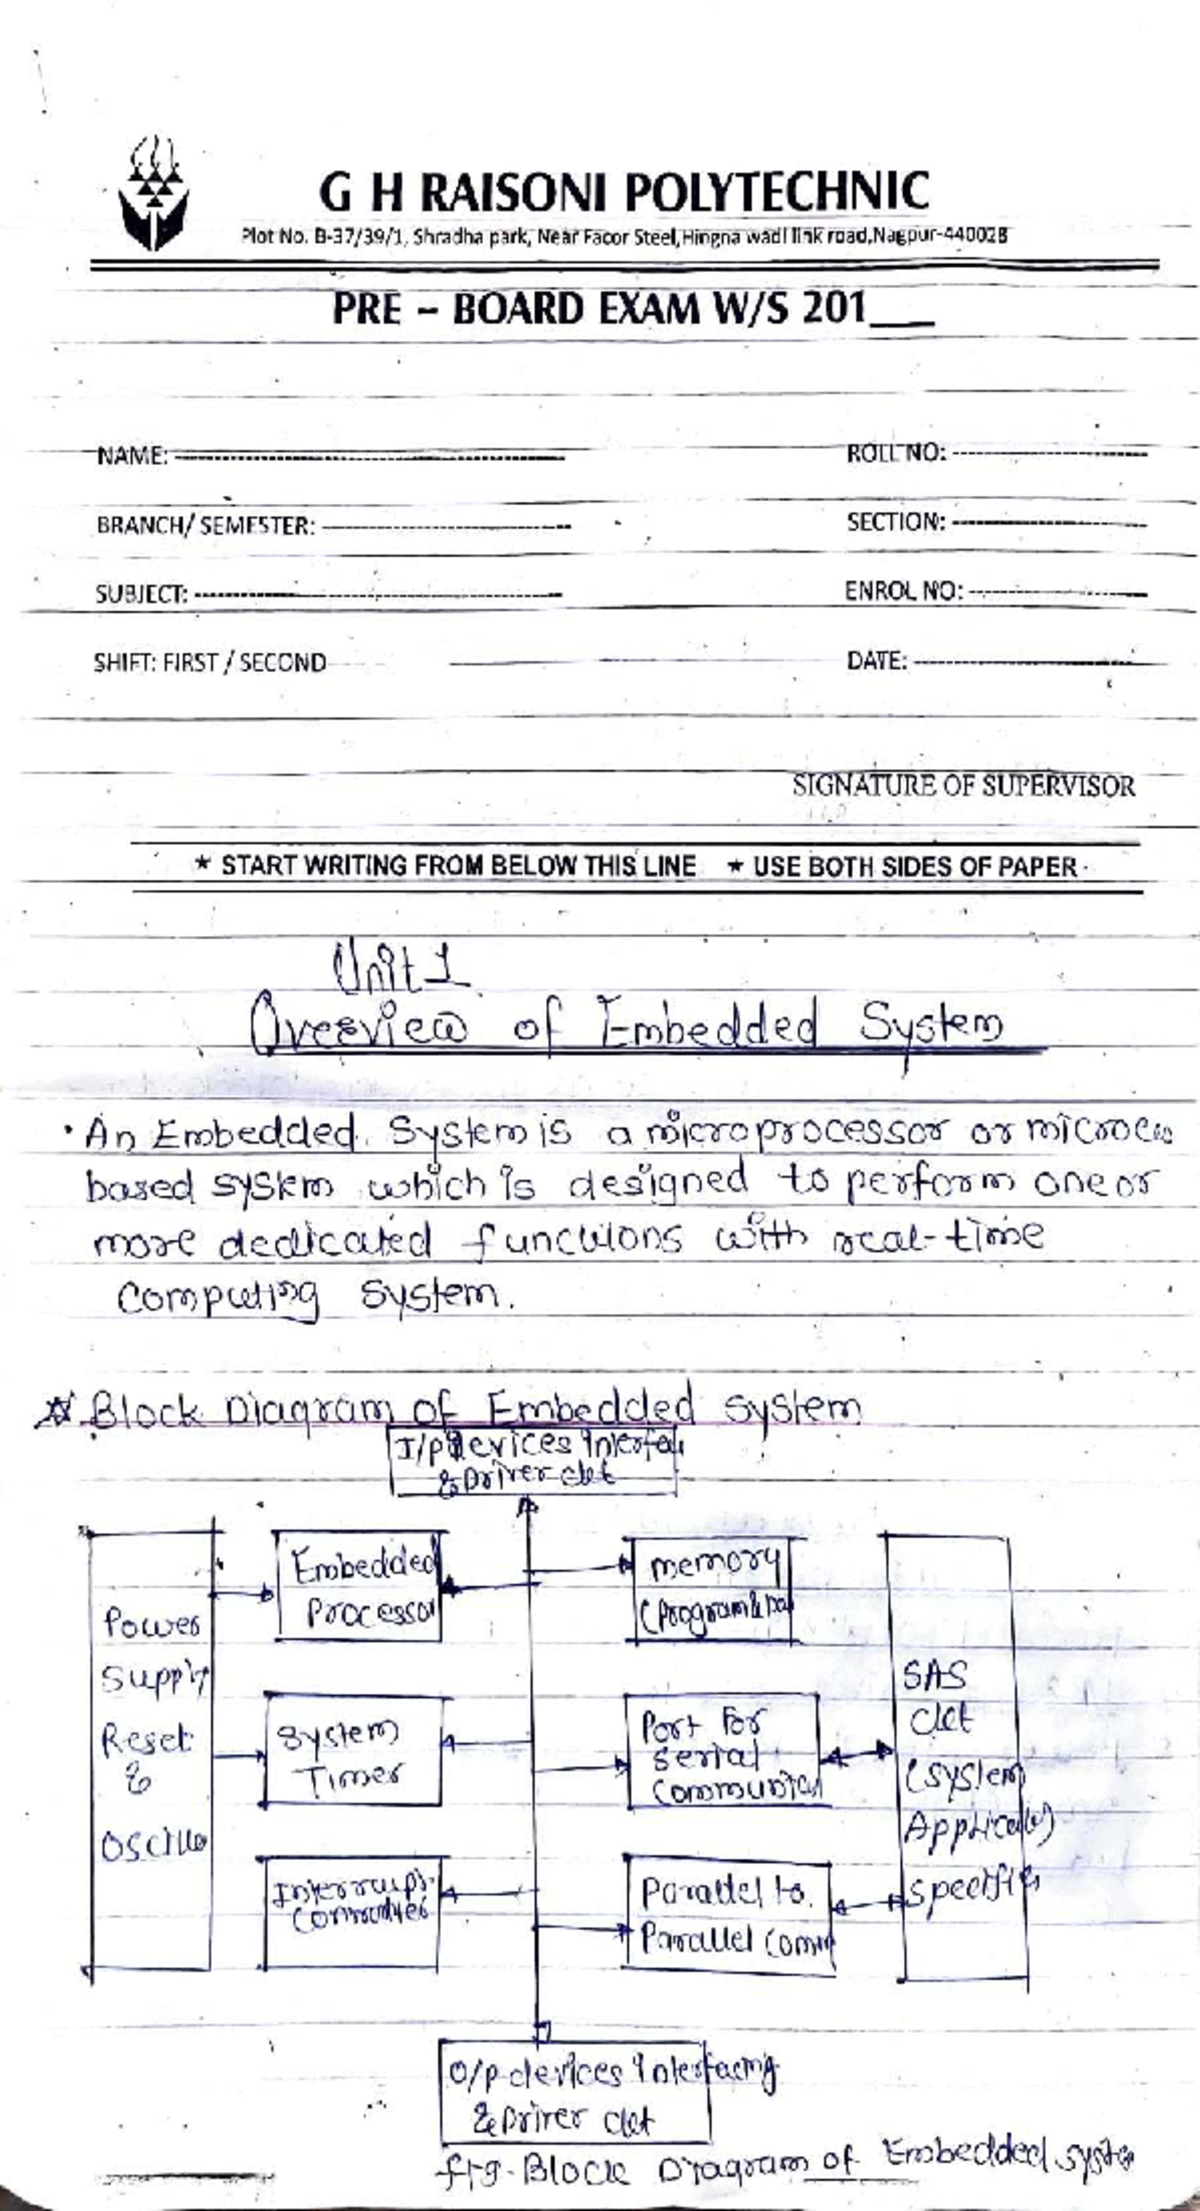 G H RAISONI POLYTECHNIC
Plot No. B-37/39/1, Shradha park, Near Facor Steel, Hingna wadi link road, Nagpur-440028
PRE – BOARD EXAM W/S 201___
NAME:
ROLL NO:
BRANCH/ SEMESTER:
SECTION:
SUBJECT:
ENROL NO:
SHIFT: FIRST / SECOND
DATE:
SIGNATURE OF SUPERVISOR
★ START WRITING FROM BELOW THIS LINE ★ USE BOTH SIDES OF PAPER
Unit 1
Overview of Embedded System
• An Embedded System is a microprocessor or
based system which is designed to perform one or
more dedicated functions with real-time
computing system.
☆ Block Diagram of Embedded System
I/p devices
& Driver ckt
Embedded
Processor
memory
(program &
Power
Supply
Reset
&
System
Timer
Port For
serial
SAS
ckt
(system
Interrupt
Parallel to
Parallel comm
O/p devices interfacing
& Driver ckt
fig. Block Diagram of Embedded